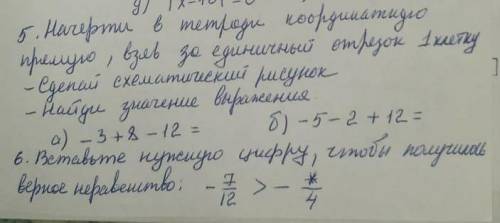 д) |x-40| = 0
5. Начерти в тетради координатную
прямую, взяв за единичный отрезок 1 клетку
- Сделай схематический рисунок
- Найди значение выражения.
а) -3+8-12= б) -5-2+12=
6. Вставьте нужную цифру, чтобы получилось
верное неравенство: - 7/12 > - */4